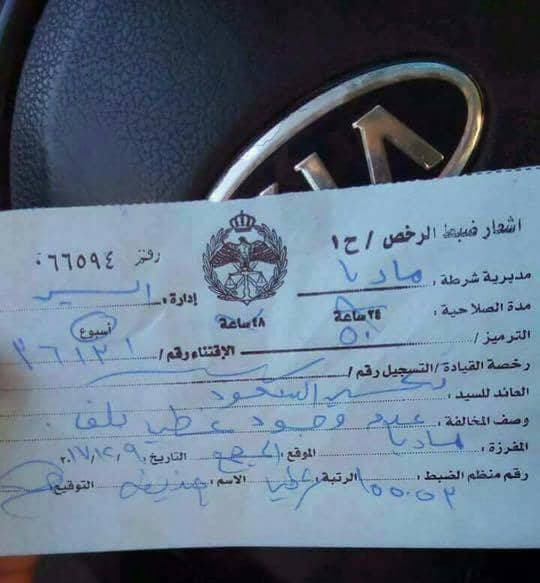 KIA
اشعار ضبط الرخص / ح ١
رقم ٠٦٦٥٩٤
مديرية شرطة : مادبا إدارة : السير
مدة الصلاحية : ٢٤ ساعة ٤٨ ساعة أسبوع
الترميز / ٥٠ الإقتناء رقم / ٣٦١٢١
رخصة القيادة / التسجيل رقم /
العائد للسيد : تحسين السعود
وصف المخالفة : عدم وجود غطي
المفرزة : مادبا الموقع : التاريخ ٢٠١٧/١٢/٩
رقم منظم الضبط : الرتبة : الاسم : التوقيع :